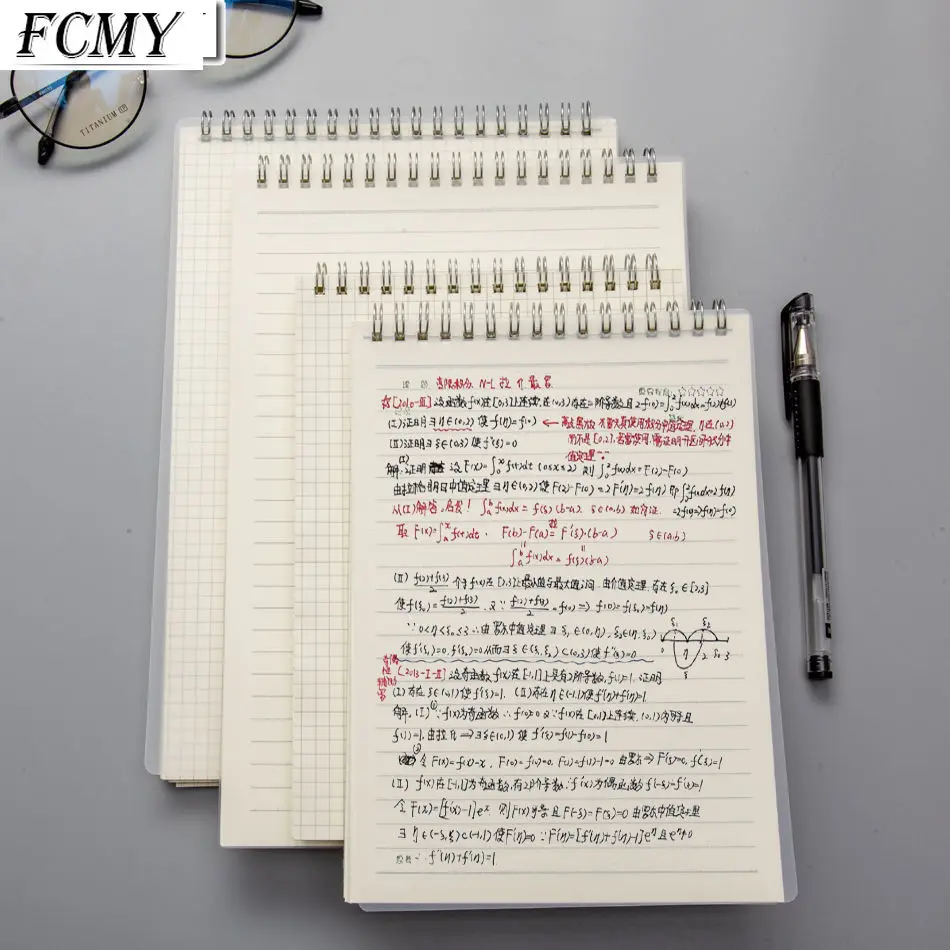 FCMY
TITANIUM
N-L
[2010-III] 设函数f(x)在[0,3]上连续,在(0,3)存在二阶导数且2f(0)=∫₀²f(x)dx=f(2)+f(3)
(I)证明∃η∈(0,2) 使f(η)=f(0)
(II)证明∃ξ∈(0,3) 使f''(ξ)=0
(I)
解:证明 设F(x)=∫₀ˣf(t)dt (0≤x≤2) 则∫₀²f(x)dx=F(2)-F(0)
由拉格朗日中值定理∃η∈(0,2)使F(2)-F(0)=2F'(η)=2f(η)即∫₀²f(x)dx=2f(η)
从(I)解答 启发! ∫ₐᵇf(x)dx=f(ξ)(b-a) ξ∈(a,b)
取F(x)=∫ₐˣf(t)dt. F(b)-F(a)=F'(ξ)·(b-a) ξ∈(a,b)
∫ₐᵇf(x)dx=f(ξ)(b-a)
(II) (f(2)+f(3))/2 介于f(x)在[2,3]上最小值与最大值之间. 由介值定理,存在ξ₀∈[2,3]
使f(ξ₀)=(f(2)+f(3))/2 又∵(f(2)+f(3))/2=f(0)⇒f(0)=f(ξ₀)=f(η)
∵0<η<ξ₀≤3∴由罗尔中值定理∃ξ₁∈(0,η),ξ₂∈(η,ξ₀)
使f'(ξ₁)=0,f'(ξ₂)=0从而∃ξ∈(ξ₁,ξ₂)⊂(0,3)使f''(ξ)=0
[2013-I-II] 设奇函数f(x)在[-1,1]上具有2阶导数,f(1)=1.证明
(I)存在ξ∈(0,1)使f'(ξ)=1. (II)存在η∈(-1,1)使f''(η)+f'(η)=1
解:(I)①∵f(x)为奇函数∴f(0)=0又∵f(x)在[0,1]上连续,(0,1)内可导且
f(1)=1.由拉格⇒∃ξ∈(0,1)使f'(ξ)=f(1)-f(0)=1
②令F(x)=f(x)-x, F(0)=f(0)=0, F(1)=f(1)-1=0 由罗尔⇒F'(ξ)=0,f'(ξ)=1
(II) f(x)在[-1,1]为奇函数,有2阶导数,∴f'(x)为偶函数f'(-ξ)=f'(ξ)=1
令F(x)=[f'(x)-1]eˣ 则F(x)可导且F(-ξ)=F(ξ)=0由罗尔中值定理
∃η∈(-ξ,ξ)⊂(-1,1)使F'(η)=0∵F'(η)=[f''(η)+f'(η)-1]e^η且e^η≠0
∴f''(η)+f'(η)=1